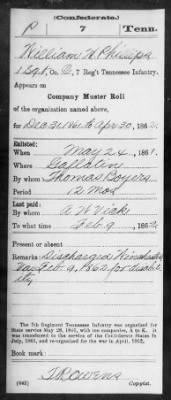 (Confederate.)
P 7 Tenn.
William H. Phillips
1 Sgt, Co. 7 Reg't Tennessee Infantry.
Appears on
Company Muster Roll
of the organization named above,
for Dec 31, 1861 to Apr 30, 1862.
Enlisted:
When May 24, 1861.
Where Gallatin
By whom Thomas Boyers
Period 12 Mos
Last paid:
By whom A H
To what time Feb. 9, 1862.
Present or absent
Remarks: Discharged Winchester
Va Feb. 9, 1862 for disabil
ity
The 7th Regiment Tennessee Infantry was organized for
State service May 26, 1861, with ten companies, A to K. It
was transferred to the service of the Confederate States in
July, 1861, and re-organized for the war in April, 1862.
Book mark:
T. R. Owens
(642) Copyist.